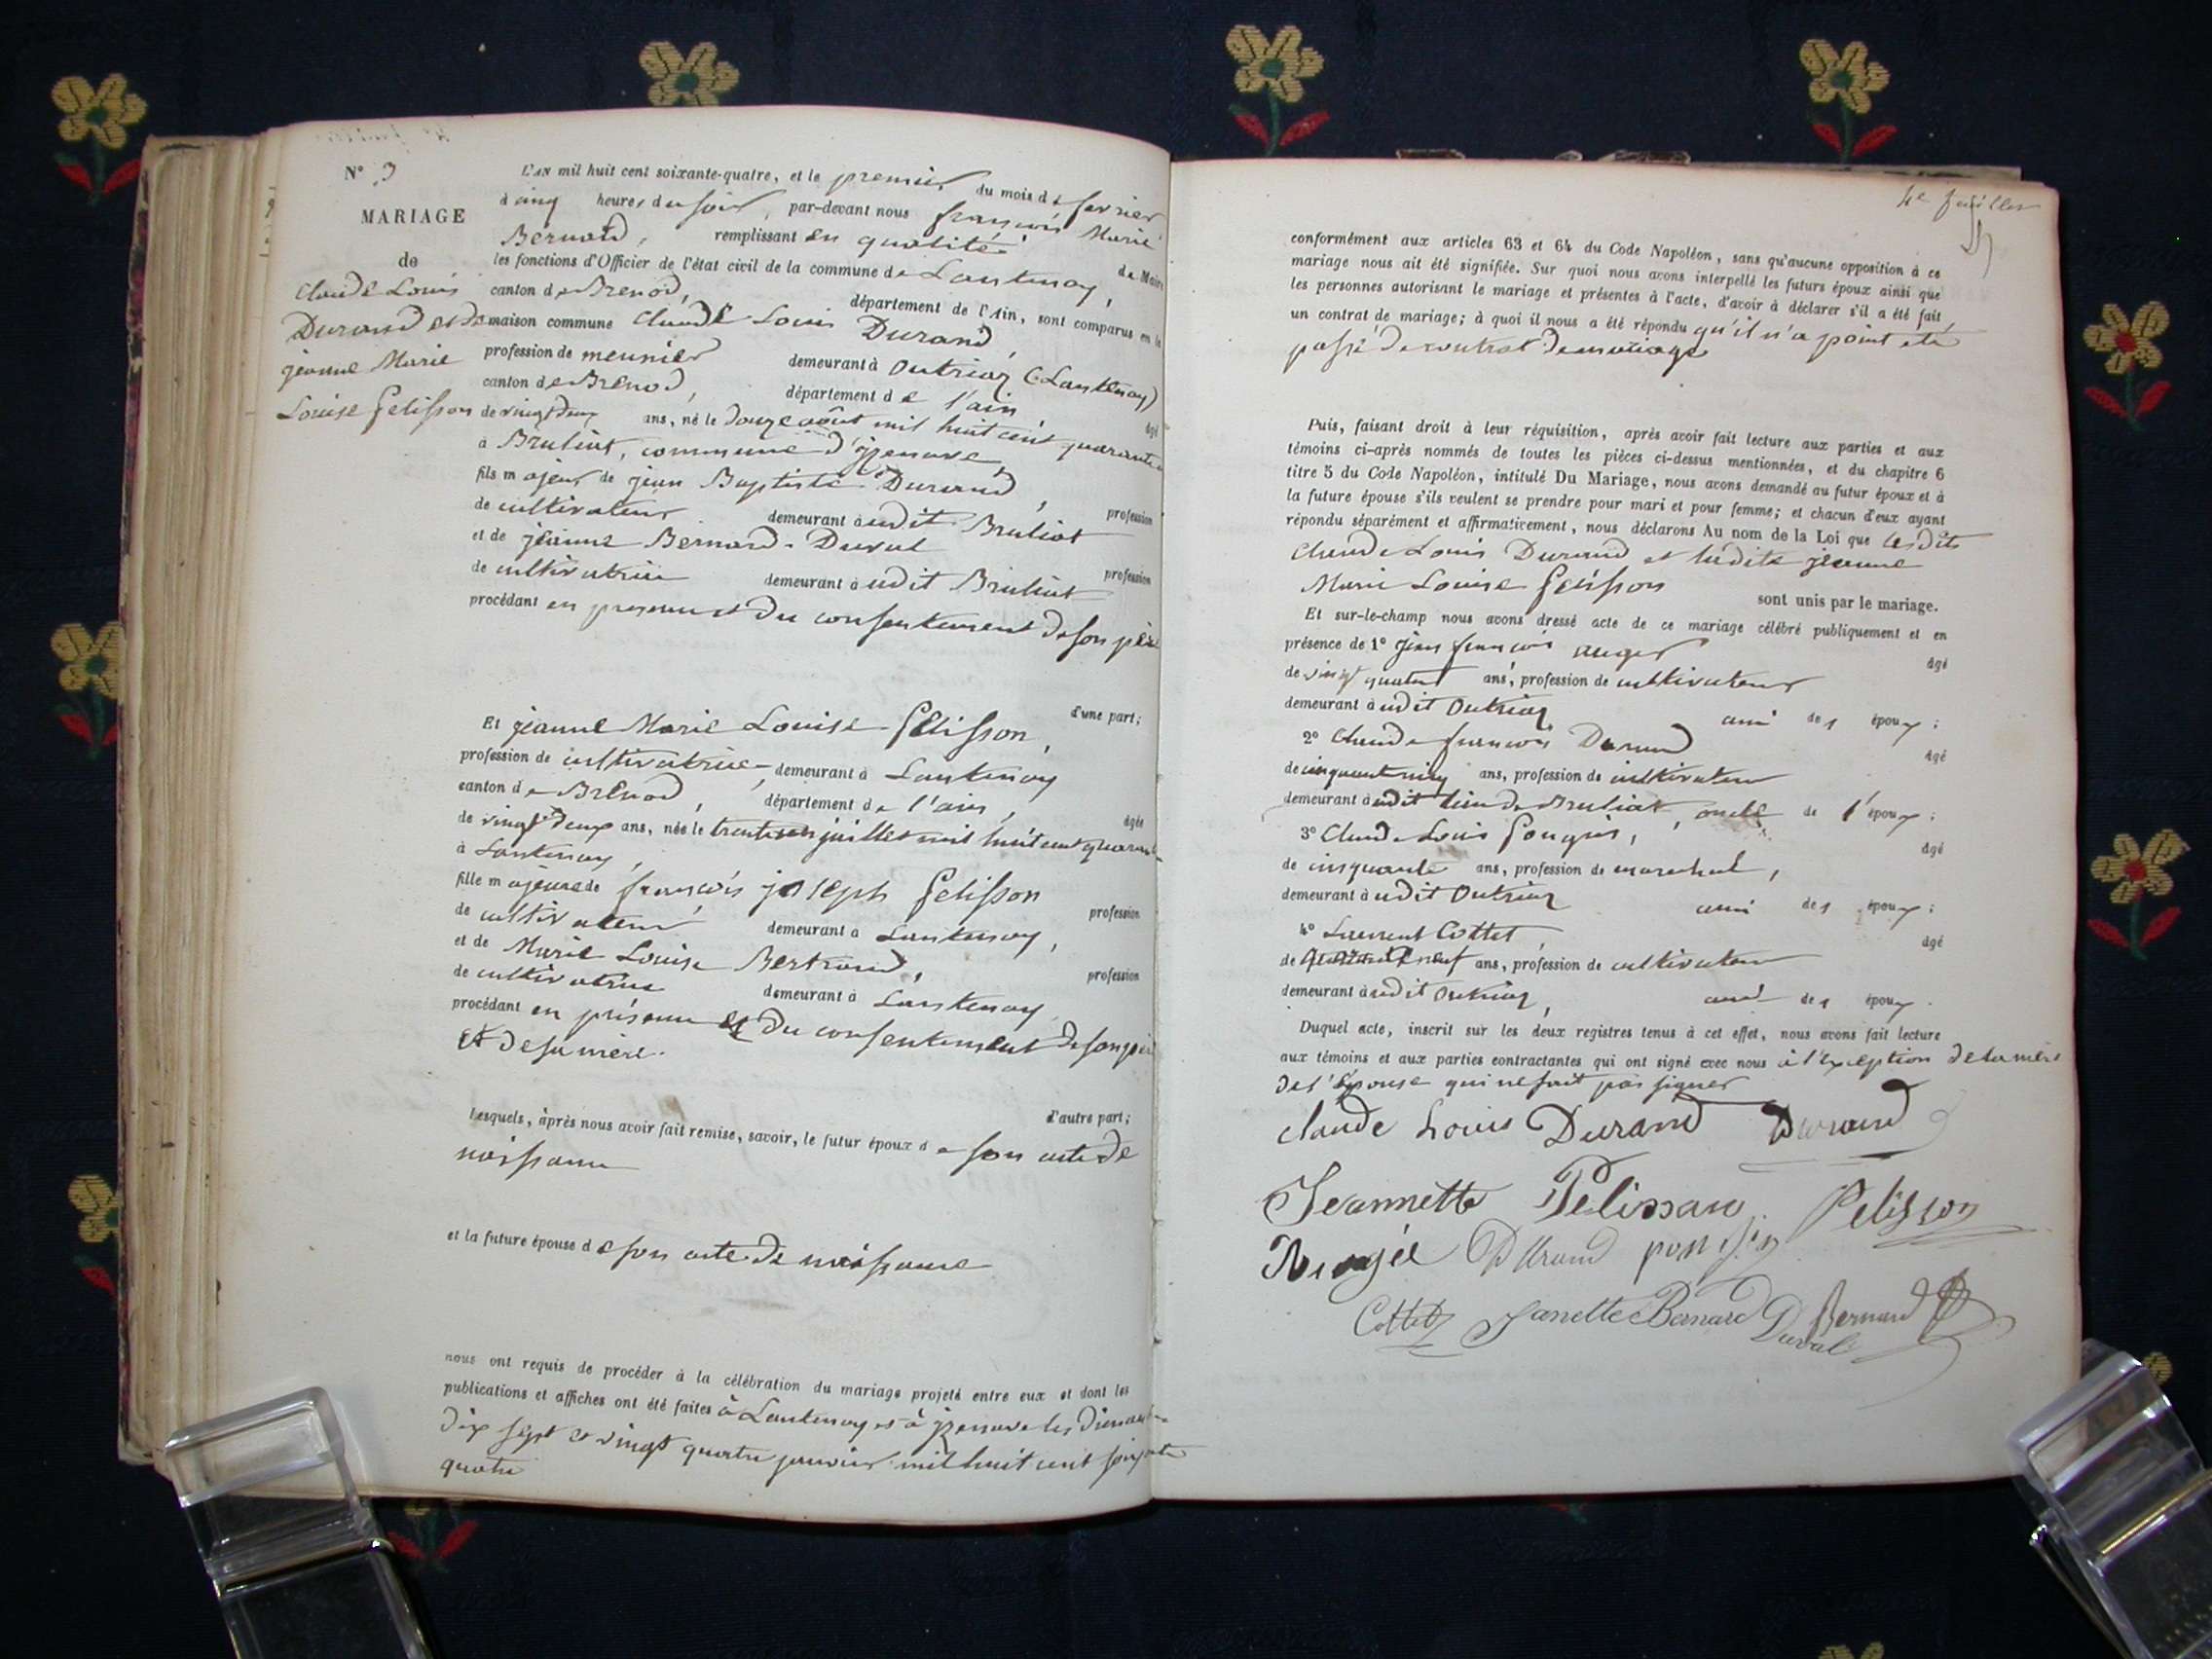 N° 3
MARIAGE
de
Claude Louis
Durand et de
jeanne Marie
Louise Pelisson
L'AN mil huit cent soixante-quatre, et le premier du mois de fevrier
à cinq heures du soir, par-devant nous françois Marie
Bernard, remplissant en qualité de Maire
les fonctions d'Officier de l'état civil de la commune de Lantenay,
canton de Brenod, département de l'Ain, sont comparus en la
maison commune Claude Louis Durand,
profession de meunier demeurant à Outriaz (Lantenay)
canton de Brenod, département de l'ain âgé
de vingt deux ans, né le douze août mil huit cent quarante un
à Bruliat, commune d'izenave,
fils majeur de jean Baptiste Durand, profession
de cultivateur demeurant à udit Bruliat
et de jeanne Bernard-Duval profession
de cultivatrice demeurant à udit Bruliat
procédant en presence et du consentement de son père
d'une part;
Et jeanne Marie Louise Pelisson,
profession de cultivatrice, demeurant à Lantenay
canton de Brenod, département de l'ain, âgée
de vingt deux ans, née le juillet mil huit cent quarante
à Lantenay,
fille majeure de françois joseph Pelisson profession
de cultivateur demeurant à Lantenay,
et de Marie Louise Bertrand, profession
de cultivatrice demeurant à Lantenay
procédant en présence et du consentement de son père
et de sa mère.
d'autre part;
Lesquels, après nous avoir fait remise, savoir, le futur époux de son acte de
naissance
et la future épouse de son acte de naissance
nous ont requis de procéder à la célébration du mariage projeté entre eux et dont les
publications et affiches ont été faites à Lantenay et à izenave les dimanches
dix sept et vingt quatre janvier mil huit cent soixante
quatre
4e feuillet
conformément aux articles 63 et 64 du Code Napoléon, sans qu'aucune opposition à ce
mariage nous ait été signifiée. Sur quoi nous avons interpellé les futurs époux ainsi que
les personnes autorisant le mariage et présentes à l'acte, d'avoir à déclarer s'il a été fait
un contrat de mariage; à quoi il nous a été répondu qu'il n'a point été
passé de contrat de mariage
Puis, faisant droit à leur réquisition, après avoir fait lecture aux parties et aux
témoins ci-après nommés de toutes les pièces ci-dessus mentionnées, et du chapitre 6
titre 5 du Code Napoléon, intitulé Du Mariage, nous avons demandé au futur époux et à
la future épouse s'ils veulent se prendre pour mari et pour femme; et chacun d'eux ayant
répondu séparément et affirmativement, nous déclarons Au nom de la Loi que lesdits
Claude Louis Durand et ladite jeanne
Marie Louise Pelisson sont unis par le mariage.
Et sur-le-champ nous avons dressé acte de ce mariage célébré publiquement et en
présence de 1° jean françois auger âgé
de vingt quatre ans, profession de cultivateur
demeurant à udit Outriaz ami des époux;
2° Claude françois Durand âgé
de cinquante cinq ans, profession de cultivateur
demeurant à udit lieu de Bruliat, oncle de l'époux;
3° Claude Louis Ponçin, âgé
de cinquante ans, profession de marechal,
demeurant à udit Outriaz ami des époux;
4° Laurent Cottet, âgé
de quarante neuf ans, profession de cultivateur
demeurant à udit Outriaz, ami des époux.
Duquel acte, inscrit sur les deux registres tenus à cet effet, nous avons fait lecture
aux témoins et aux parties contractantes qui ont signé avec nous à l'exception de la mère
de l'épouse qui ne sait pas signer
Claude Louis Durand Durand
Jeannette Pelissan Pelisson
Durand
Cottet Janette Bernard Duval Bernard